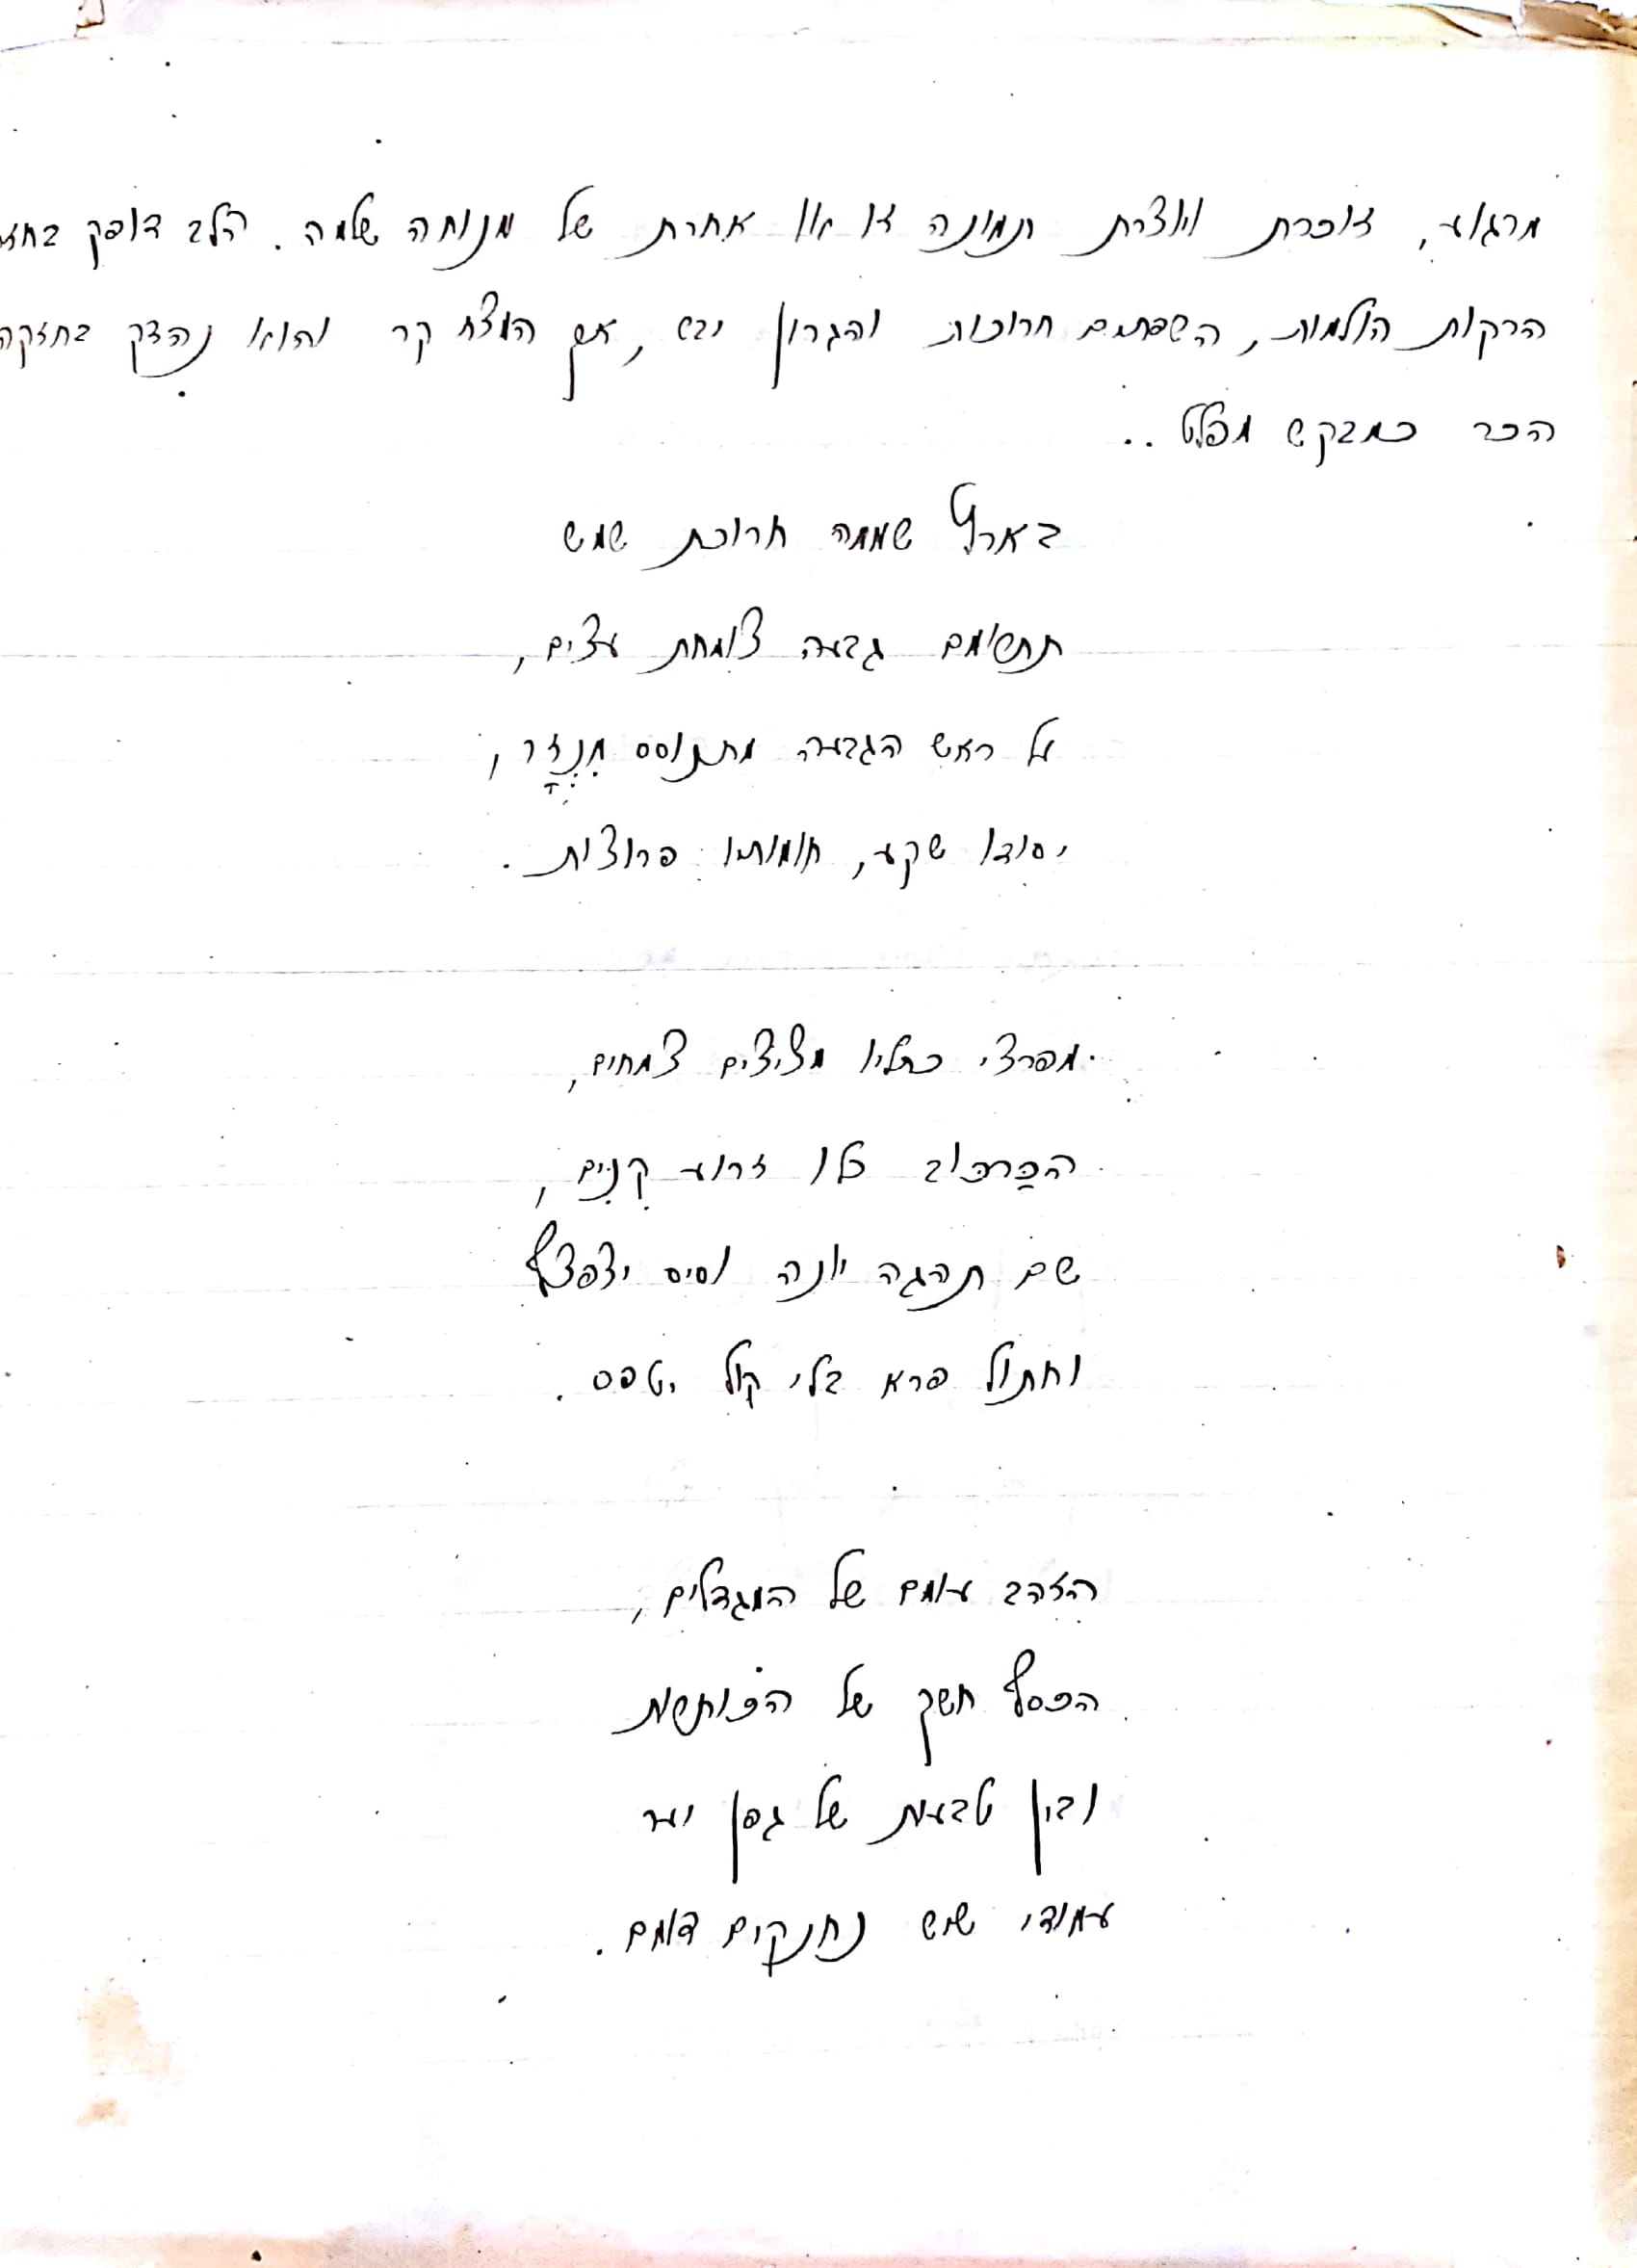 מרגוע, זוכרת ויוצרת תמונה זו או אחרת של מנוחה שלמה. הלב דופק בחז
הרקות הולמות, השפתים חרוכות והגרון יבש, אך המצח קר והוא נהדק בחזקה
הכר כמבקש מפלט..
בארץ שממה חרוכת שמש
תתשומם גבעה צומחת עצים,
על ראש הגבעה מתנוסס מִנְזָר,
יסודו שקע, חומותיו פרוצות.
מפרצי כתליו מציצים צמחים,
הכַּרכּוב כלו זרוע קִנִּים,
שם תהגה יונה וסיס יצפצף
וחתול פרא בלי קול יטפס.
הזהב עומם של המגדלים,
הכסף חשך של הכותשות
ובין טבעות של גפן יער
עמודי שיש נחנקים דומם.